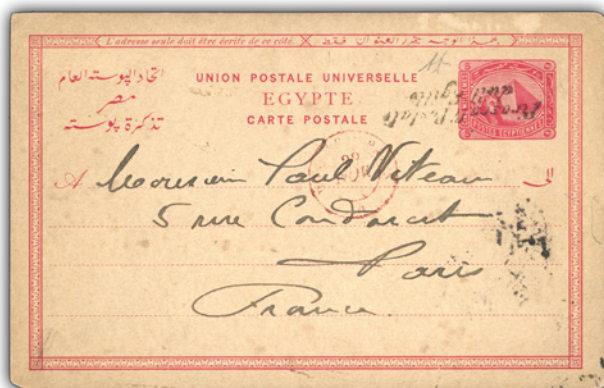 L'adresse seule doit être écrite de ce côté.
اتحاد البوستة العام
مصر
تذكرة بوستة
UNION POSTALE UNIVERSELLE
EGYPTE
CARTE POSTALE
A Monsieur Paul Viteau الى
5 rue Condorcet
Paris
France